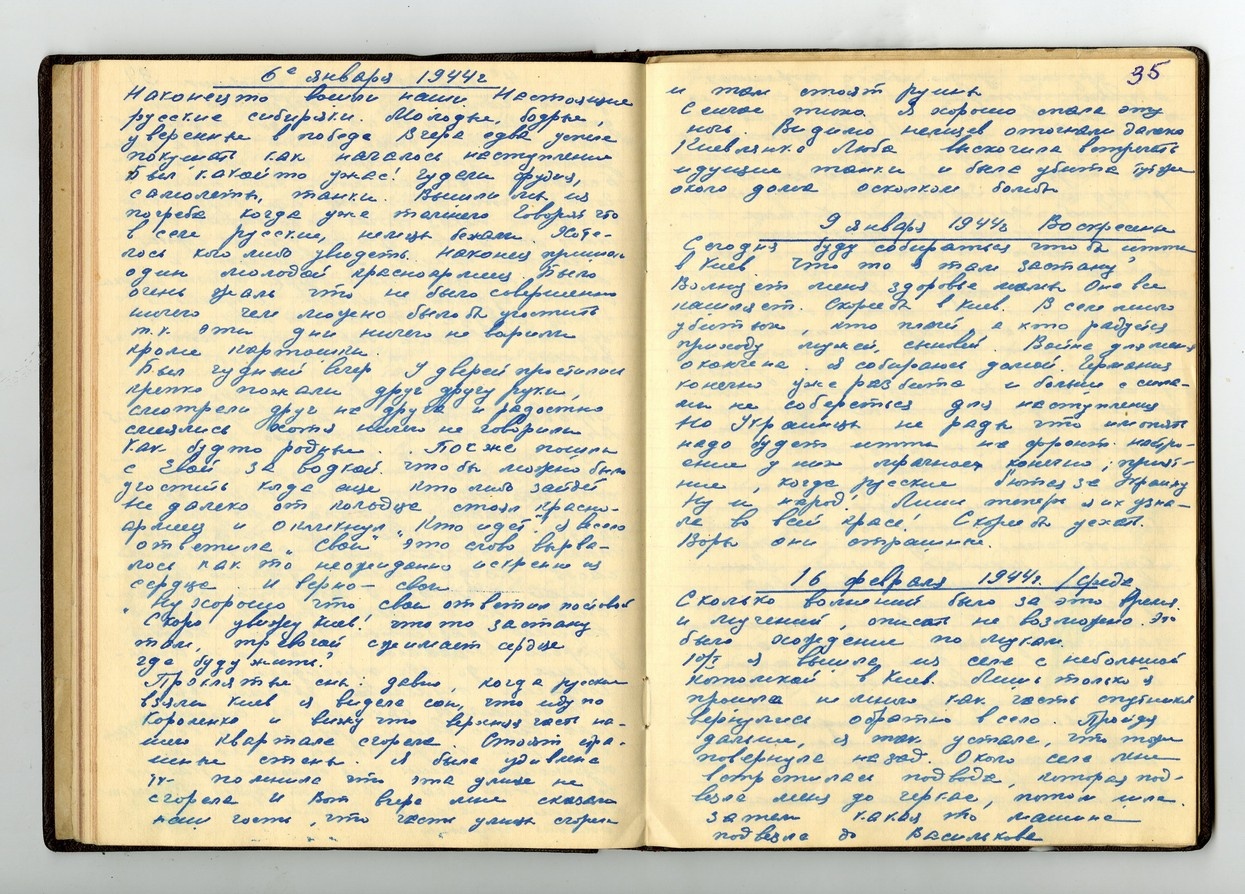 6е января 1944г
Наконец то вошли наши. Настоящие
русские сибиряки. Молодые, бодрые,
уверенные в победе Вчера едва успели
покушать как началось наступление
Был какой то ужас! гудели орудия,
самолеты, танки. Вышли мы из
погреба когда уже Говорят что
в селе русские, немцы бежали. Хоте-
лось кого либо увидеть. Наконец пришел
один молодой красноармеец. Было
очень жаль что не было совершенно
ничего чем можно было бы угостить
т.к. эти дни ничего не варили
кроме картошки.
Был чудный вечер У дверей простились
крепко пожали друг другу руки,
смотрели друг на друга и радостно
смеялись хотя ничего не говорили
как будто родные.. Позже пошли
с Зоей за водкой чтобы можно было
угостить когда еще кто либо зайдет
Не далеко от колодца стоял красно-
армеец и окликнул „Кто идет" я весело
ответила „свои" это слово вырва-
лось как то неожиданно искренно из
сердца. И верно – свои
„Ну хорошо что свои ответил постовой
Скоро увижу Киев! что то застану
там, тревогой сжимает сердце
где буду жить?
Проклятые сны: давно, когда русские
взяли Киев я видела сон, что иду по
Короленко и вижу что верхняя часть на-
шего квартала сгорела. Стоят стра-
шные стены. Я была удивлена
помнила что эта улица не
сгорела и вот вчера мне сказали
наши гости, что часть улицы сгорела
35
и там стоят руины
Сейчас тихо. Я хорошо спала эту
ночь. Видимо немцев отогнали далеко
Киевлянка Люба выскочила встречать
идущие танки и была убита тут же
около дома осколком бомбы
9 января 1944г Воскресенье
Сегодня буду собираться что бы итти
в Киев что то я там застану
Волнует меня здоровье мамы Она все
кашляет. Скорей бы в Киев. В селе много
убитых, кто плачет, а кто радуется
приходу мужей, сыновей. Война для меня
окончена. я собираюсь домой. Германия
конечно уже разбита и больше с сила-
ми не соберется для наступления
Но Украинцы не рады что им опять
надо будет итти на фронт. настро-
ение у них мрачное конечно, прият-
нее, когда русские бьются за Украину
Ну и народ! Лишь теперь я их узна-
ла во всей красе! Скорей бы уехать.
Воры они страшные.
16 февраля 1944г. /среда
Сколько волнений было за это время.
и мучений, описать не возможно. Это
было хождение по мукам.
10/I я вышла из села с небольшой
котомкой в Киев. Лишь только я
прошла не много как часть спутников
вернулись обратно в село. Пройдя
дальше, я так устала, что тоже
повернула назад. Около села мне
встретилась подвода, которая под-
везла меня до потом шла.
Затем какая то машина
подвезла до Василькова